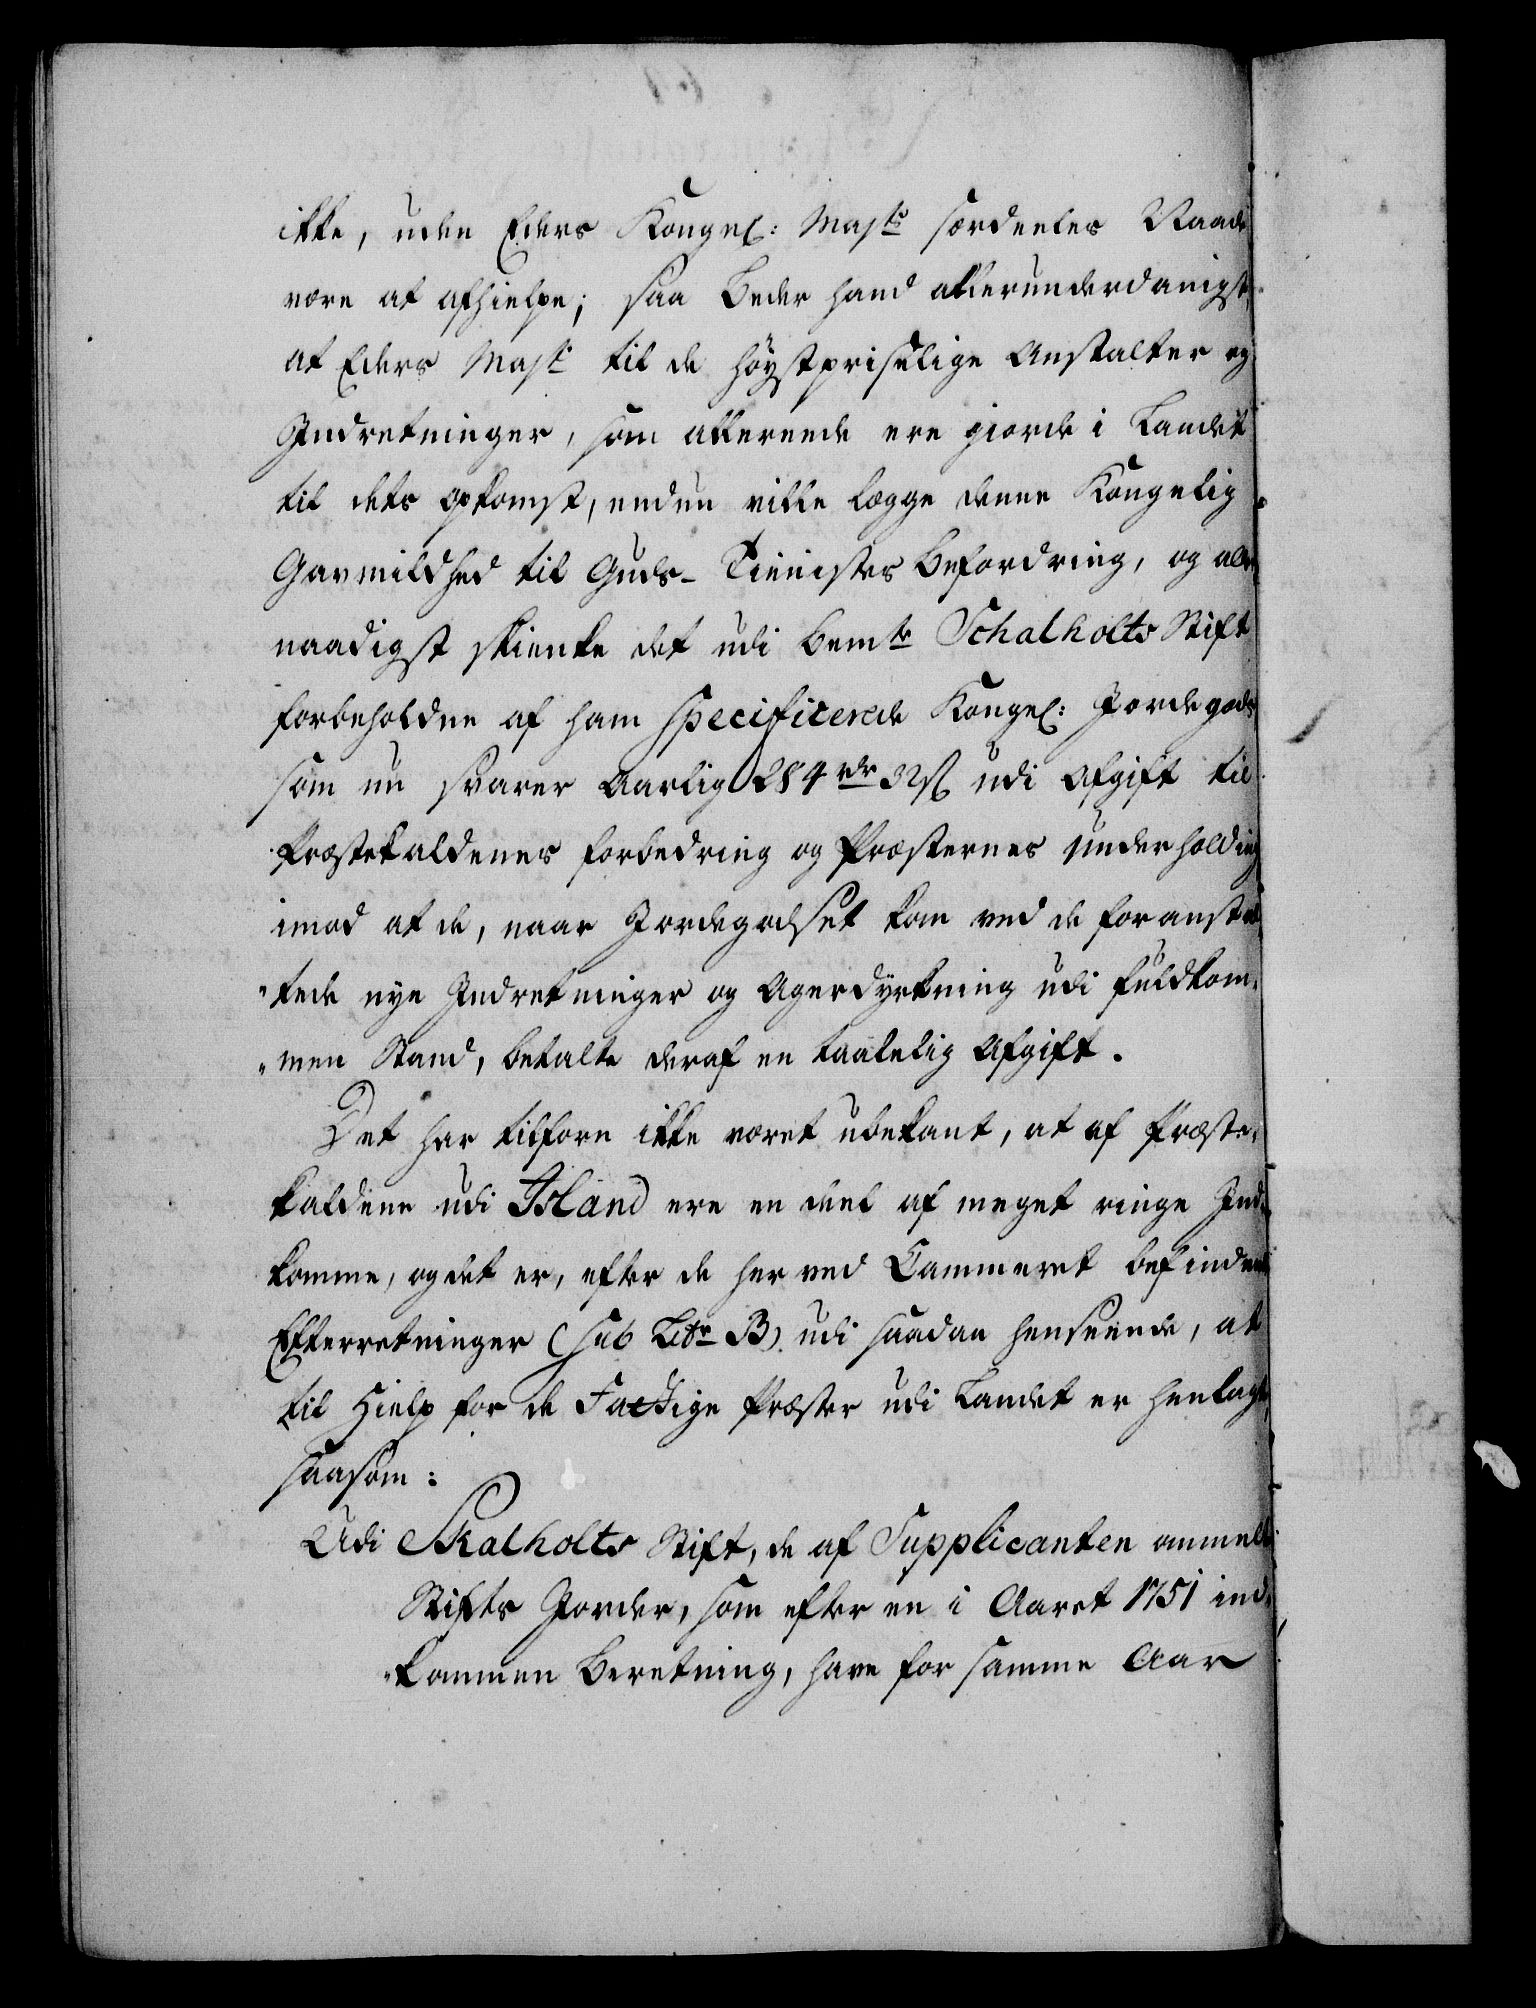 ikke, uden Eders Kongel: Majts særdeeles Naade
være at afhielpe; saa beder hand allerunderdanigst,
at Eders Majt til de høystpriselige Anstalter og
Indretninger, som allereede ere giorde i Landet
til dets opkomst, endnu ville lægge denne Kongelig
Gavmildhed til Guds-Tienistes befordring, og aller
naadigst skienke det udi bemte Schalholts Stift
forbeholdne af ham specificerede Kongel: Jordegods
som nu svarer Aarlig 284 rdr 32 s udi Afgift til
Præstekaldenes forbedring og Præsternes underholding
imod at de, naar Jordegodset kom ved de foranstal
"tede nye Indretninger og Agerdyrkning udi fuldkom,
"men Stand, betalte deraf en taalelig Afgift.
Det har tilforn ikke været ubekant, at af Præste,
kaldene udi Island ere en deel af meget ringe Ind,
komme, og det er, efter de her ved Cammeret befindende
Efterretninger (sub Litr B) udi saadan henseende, at
til Hielp for de Fattige Præster udi Landet er henlagt,
saasom:
Udi Skalholts Stift, de af Supplicanten anmeldte
Stifts Jorder, som efter en i Aaret 1751 ind,
"kommen Beretning, have for samme Aar